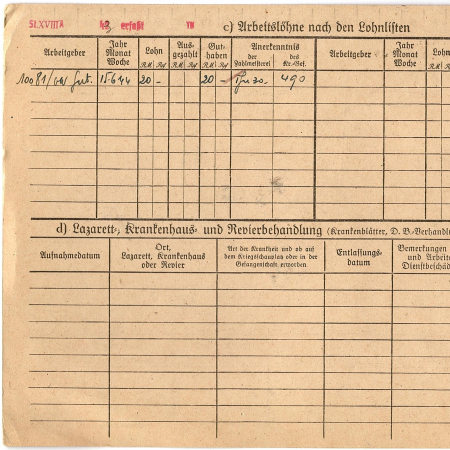 St.XVIII A erfaßt
c) Arbeitslöhne nach den Lohnlisten
Arbeitgeber
Jahr
Monat
Woche
Lohn
R.M. Rpf
Aus-
gezahlt
R.M. Rpf
Gut-
haben
R.M. Rpf
Anerkenntnis
der
Zahlmeisterei
des
Kr.-Gef.
Arbeitgeber
Jahr
Monat
Woche
Lohn
R.M.
10081/ 15644 20 - 20 - 490
d) Lazarett-, Krankenhaus- und Revierbehandlung (Krankenblätter, D. B.-Verhandl
Aufnahmedatum
Ort,
Lazarett, Krankenhaus
oder Revier
Art der Krankheit und ob auf
dem Kriegsschauplatz oder in der
Gefangenschaft erworben
Entlassungs-
datum
Bemerkungen
und Arbeits
Dienstbeschä